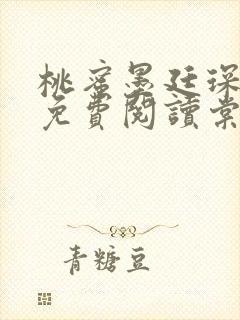 桃蜜墨廷琛
免費閱讀棠
青糖豆